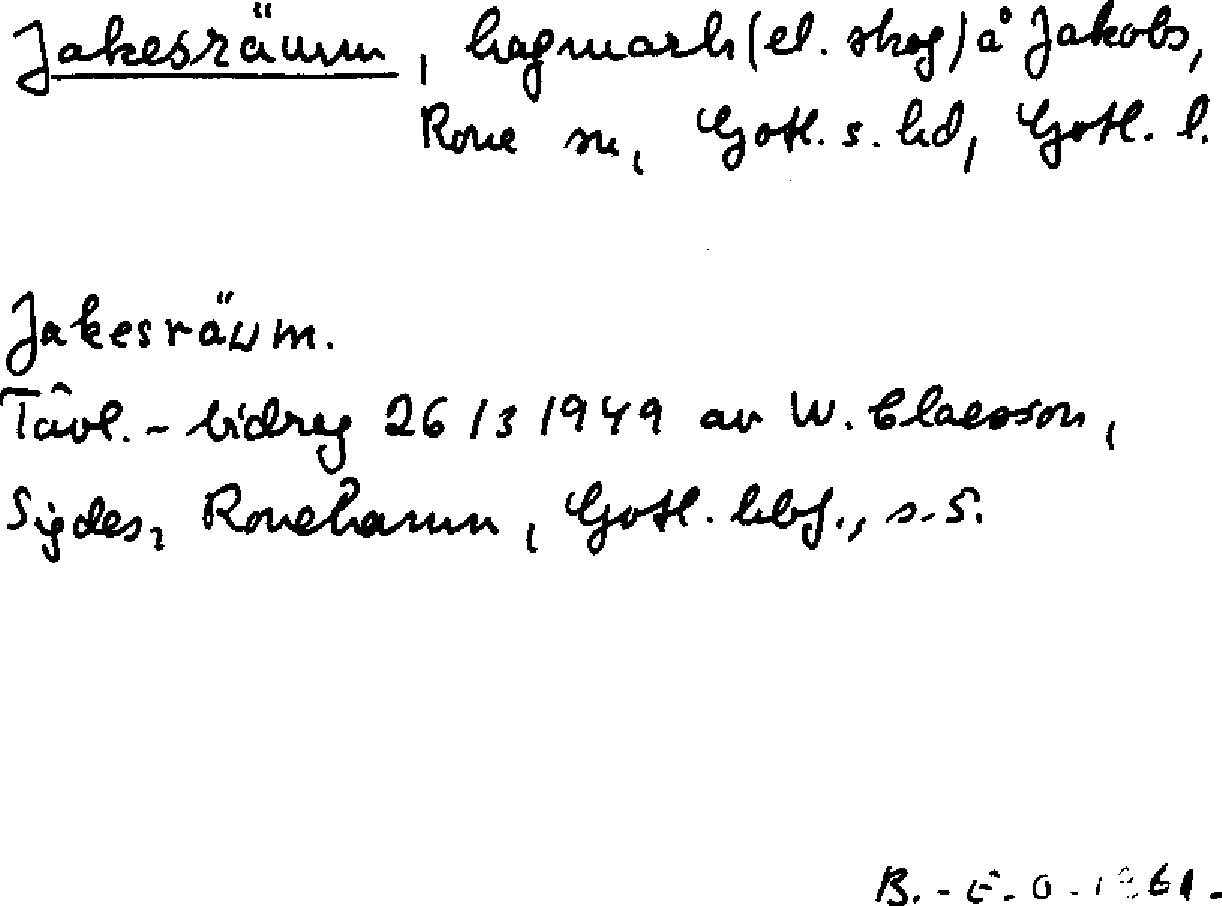 Jakesräum, hagmark (el. skog) å Jakobs,
Rone sn, Gotl. s. hd, Gotl. l.
Jakesräum.
Tävl.-bidrag 26/3 1949 av W. Claesson,
Sigdes, Ronehamn, Gotl. hbf., s. 5.
B.-E. O. 1961.